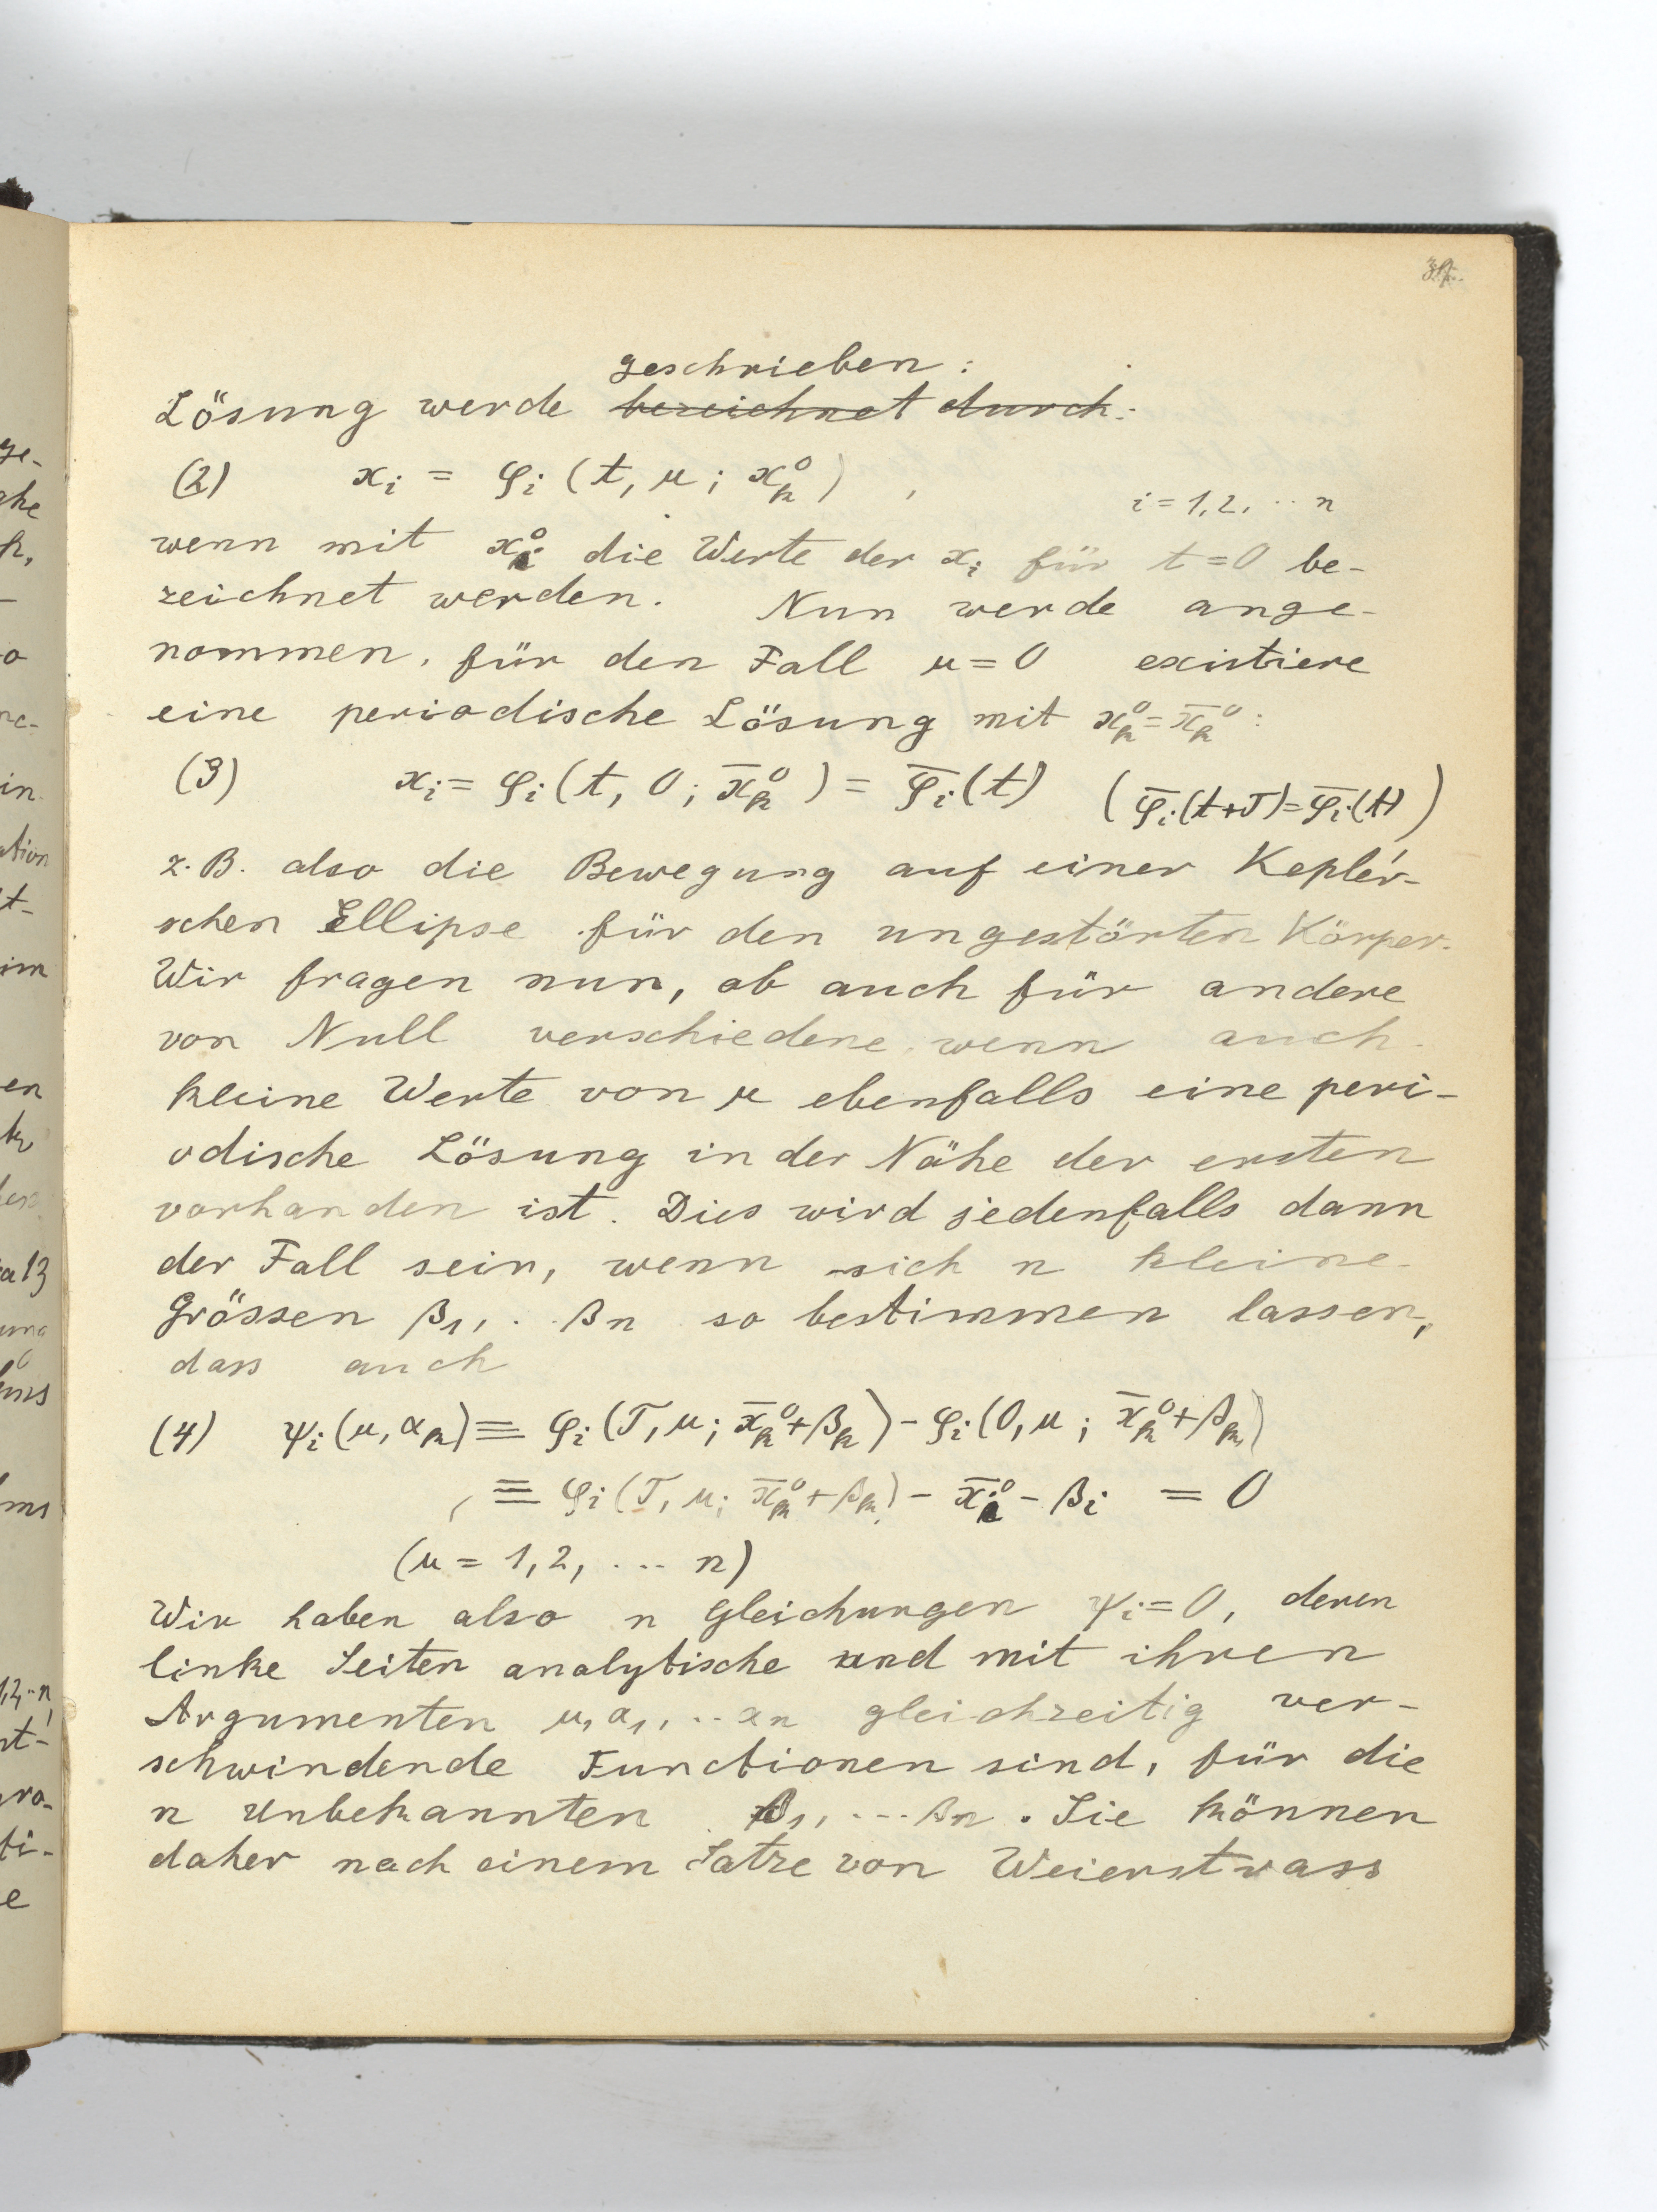 geschrieben:
Lösung werde bezeichnet durch:
(2) xᵢ = φᵢ (t, μ; xₖ⁰) , i = 1, 2, ·· n
wenn mit xᵢ⁰ die Werte der xᵢ für t = 0 be-
zeichnet werden. Nun werde ange-
nommen, für den Fall μ = 0 existiere
eine periodische Lösung mit xₖ⁰ = x̄ₖ⁰ :
(3) xᵢ = φᵢ (t, 0; x̄ₖ⁰) = φ̄ᵢ(t) (φ̄ᵢ(t+T) = φ̄ᵢ(t))
z.B. also die Bewegung auf einer Kepler-
schen Ellipse für den ungestörten Körper.
Wir fragen nun, ob auch für andere
von Null verschiedene wenn auch
kleine Werte von μ ebenfalls eine peri-
odische Lösung in der Nähe der ersten
vorhanden ist. Dies wird jedenfalls dann
der Fall sein, wenn sich n kleine
Grössen β₁, .. βn so bestimmen lassen,
dass auch
(4) ψᵢ (μ, αₖ) ≡ φᵢ (T, μ; x̄ₖ⁰ + βₖ) − φᵢ (0, μ; x̄ₖ⁰ + βₖ)
≡ φᵢ (T, μ; x̄ₖ⁰ + βₖ) − x̄ᵢ⁰ − βᵢ = 0
(μ = 1, 2, ... n)
Wir haben also n Gleichungen ψᵢ = 0, deren
linke Seiten analytische und mit ihren
Argumenten μ, α₁, .. αn gleichzeitig ver-
schwindende Functionen sind, für die
n Unbekannten β₁, ... βn. Sie können
daher nach einem Satze von Weierstrass